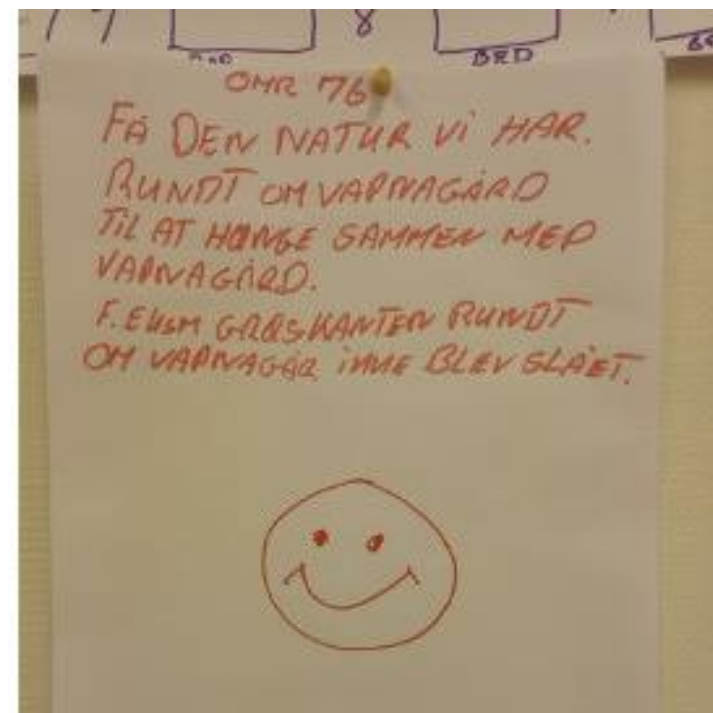 8
BED
OMR 76
FÅ DEN NATUR Vi HAR.
RUNDT OM VAPNAGÅRD
TiL AT HÆNGE SAMMEN MED
VAPNAGÅRD.
F. EKSM GRÆSKANTEN RUNDT
OM VAPNAGÅR iKKE BLEV SLÅET.